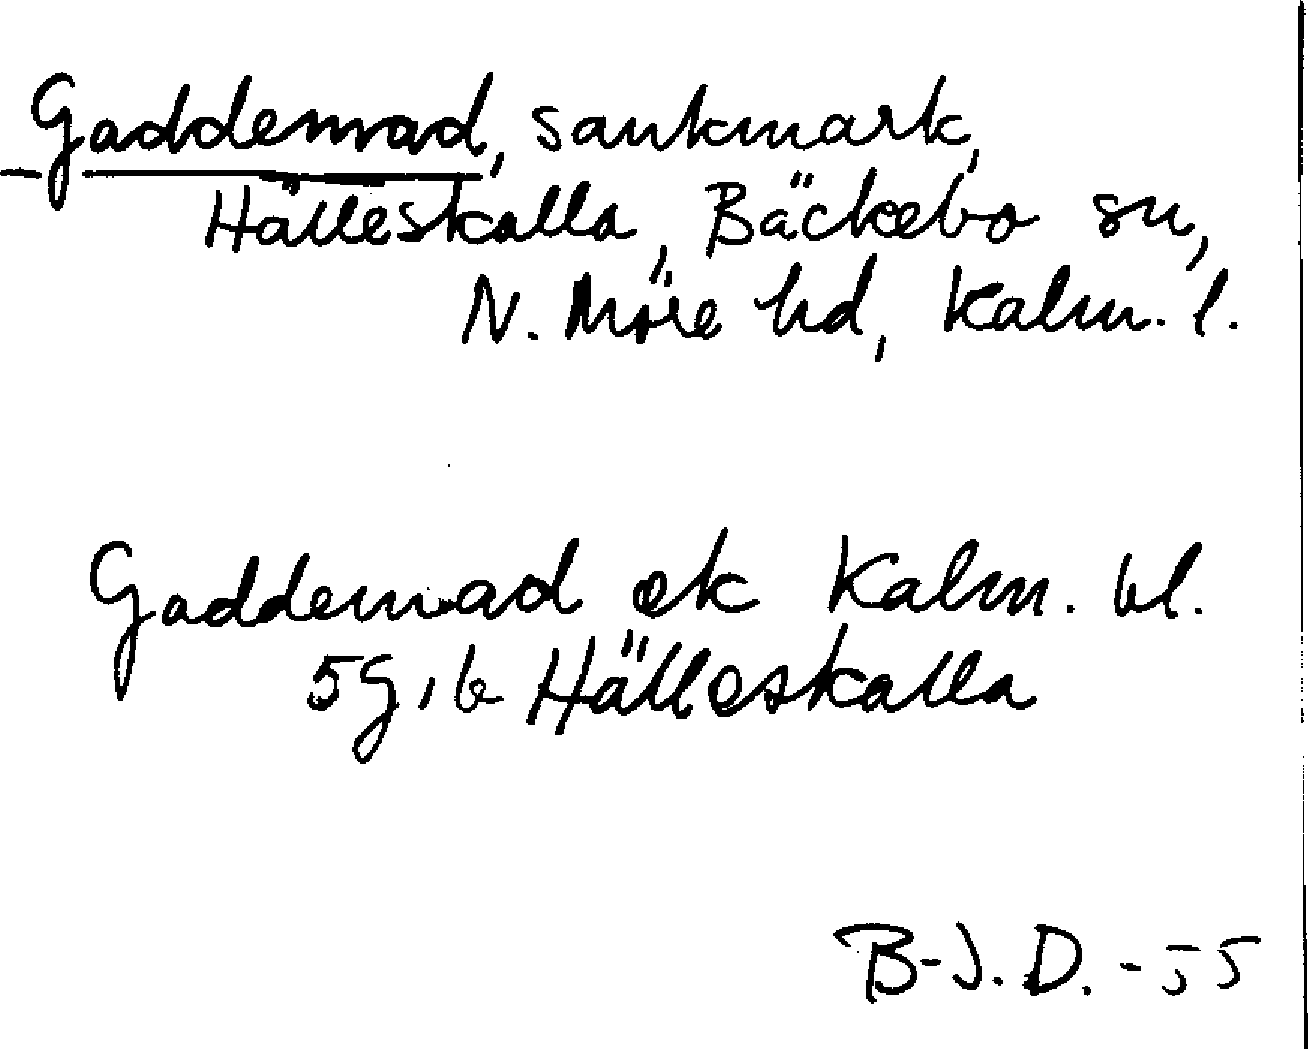 Gaddemad, sankmark,
Hälleskalla, Bäckebo sn,
N. Möre hd, Kalm. l.
Gaddemad ek Kalm. bl.
5 g, b Hälleskalla
B-J. D. - 55